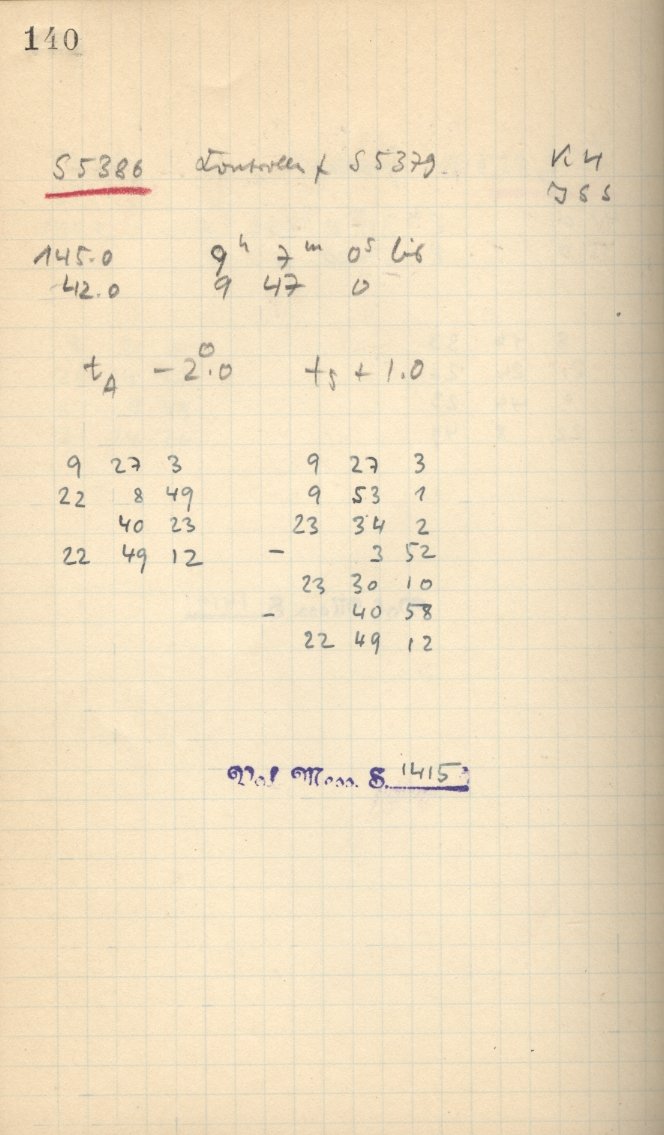 140
S 5386 Kontrolle f S 5379. K H
J S S
145.0 9h 7m 0s bis
42.0 9 47 0
tA -2°.0 ts + 1.0
9 27 3 9 27 3
22 8 49 9 53 1
40 23 23 34 2
22 49 12 - 3 52
23 30 10
- 40 58
22 49 12
Vol. Mess. S. 1415